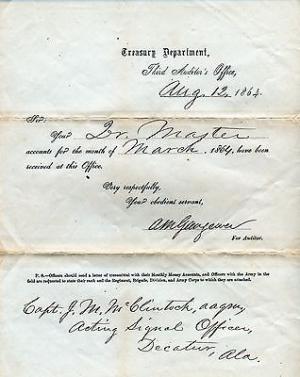 Treasury Department,
Third Auditor's Office,
Aug. 12, 1864.
Sir:
Your Qr. Master
accounts for the month of March, 1864, have been
received at this Office.
Very respectfully,
Your obedient servant,
For Auditor.
P. S.—Officers should send a letter of transmittal with their Monthly Money Accounts, and Officers with the Army in the
field are requested to state their rank and the Regiment, Brigade, Division, and Army Corps to which they are attached.
Capt. J. M. McClintock, aaqm,
Acting Signal Officer,
Decatur,
Ala.